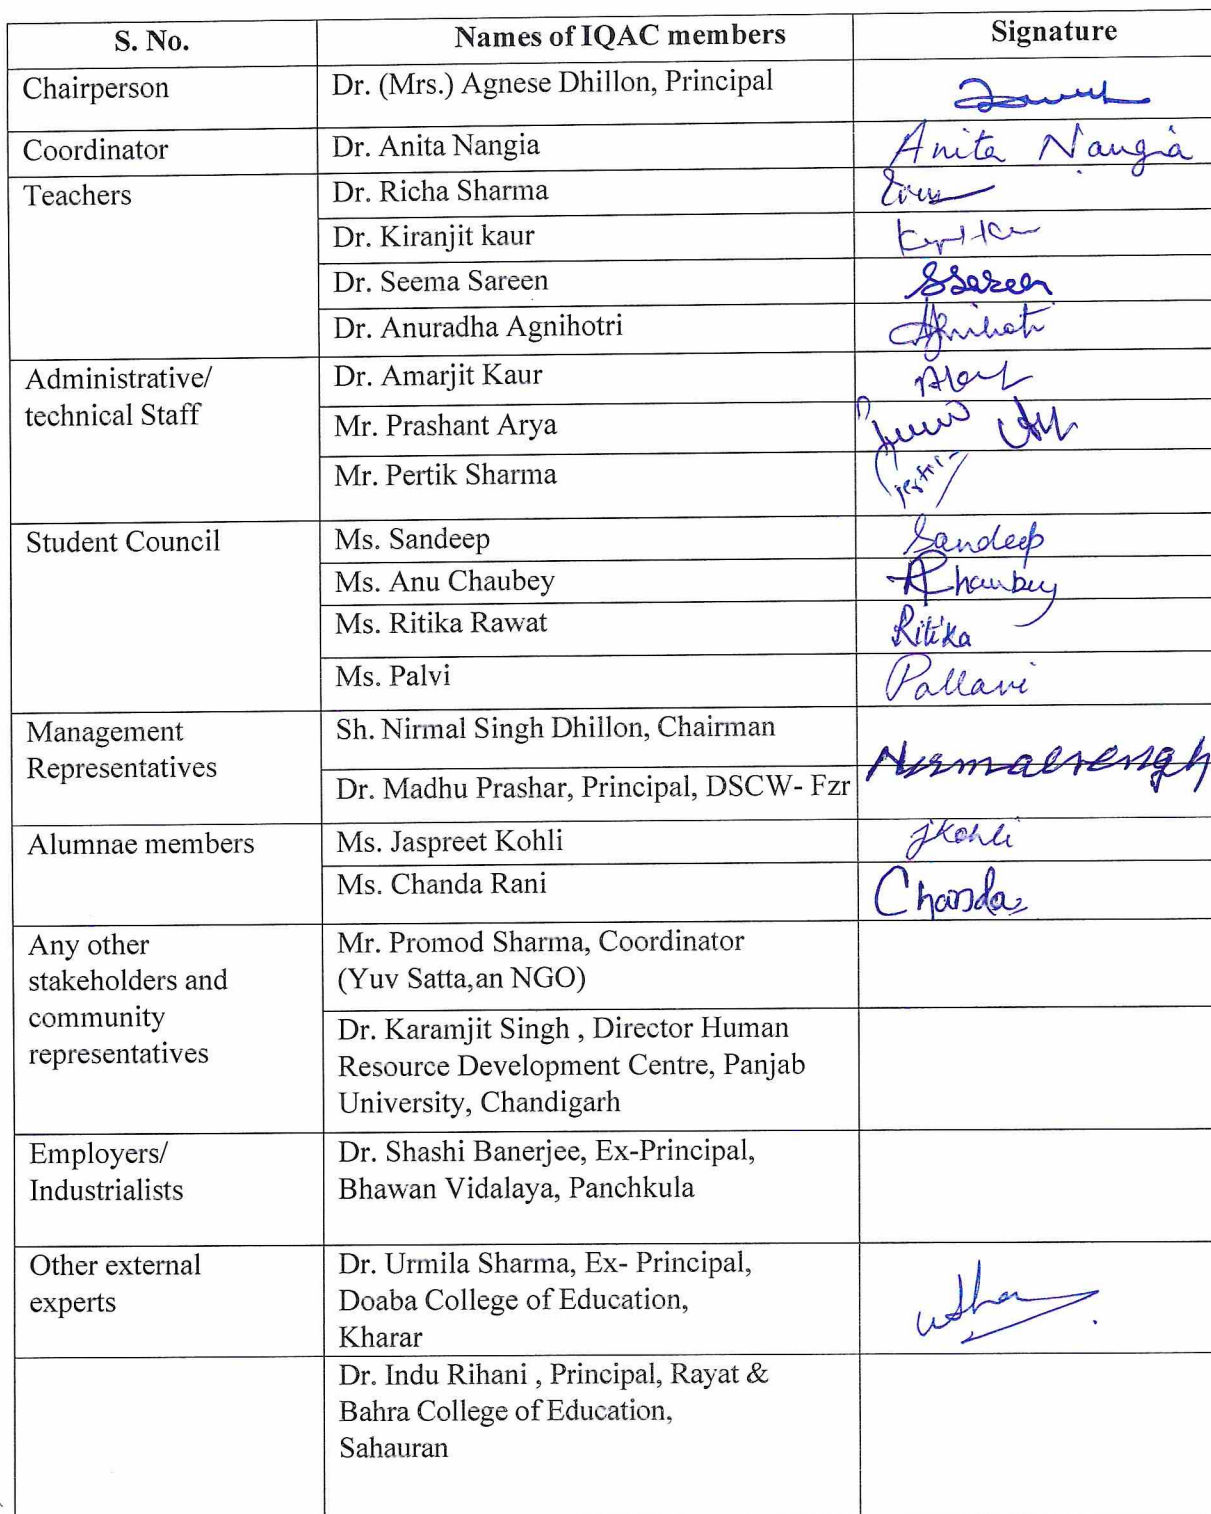 S. No. Names of IQAC members Signature
Chairperson Dr. (Mrs.) Agnese Dhillon, Principal
Coordinator Dr. Anita Nangia Anita Nangia
Teachers Dr. Richa Sharma
Dr. Kiranjit kaur
Dr. Seema Sareen SSareen
Dr. Anuradha Agnihotri
Administrative/ Dr. Amarjit Kaur
technical Staff
Mr. Prashant Arya
Mr. Pertik Sharma
Student Council Ms. Sandeep Sandeep
Ms. Anu Chaubey AChaubey
Ms. Ritika Rawat Ritika
Ms. Palvi Pallavi
Management Sh. Nirmal Singh Dhillon, Chairman
Representatives
Dr. Madhu Prashar, Principal, DSCW- Fzr
Alumnae members Ms. Jaspreet Kohli jKohli
Ms. Chanda Rani Chanda
Any other Mr. Promod Sharma, Coordinator
stakeholders and (Yuv Satta,an NGO)
community
representatives
Dr. Karamjit Singh , Director Human
Resource Development Centre, Panjab
University, Chandigarh
Employers/ Dr. Shashi Banerjee, Ex-Principal,
Industrialists Bhawan Vidalaya, Panchkula
Other external Dr. Urmila Sharma, Ex- Principal,
experts Doaba College of Education,
Kharar
Dr. Indu Rihani , Principal, Rayat &
Bahra College of Education,
Sahauran